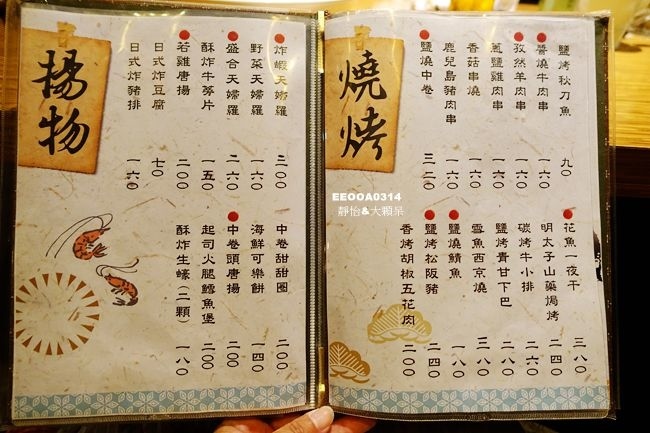 燒烤
鹽烤秋刀魚 九〇
醬燒牛肉串 一六〇
孜然羊肉串 一六〇
蔥鹽雞肉串 一六〇
香菇串燒 一六〇
鹿兒島豬肉串 一六〇
鹽燒中卷 三二〇
花魚一夜干 三八〇
明太子山藥焗烤 二四〇
碳烤牛小排 二六〇
鹽烤青甘下巴 二八〇
雪魚西京燒 三八〇
鹽燒鯖魚 一六〇
鹽烤松阪豬 二四〇
香烤胡椒五花肉 二〇〇
揚物
炸蝦天婦羅 二〇〇
野菜天婦羅 一六〇
盛合天婦羅 二六〇
酥炸牛蒡片 一五〇
若雞唐揚 二〇〇
日式炸豆腐 七〇
日式炸豬排 一六〇
中卷甜甜圈 二〇〇
海鮮可樂餅 一四〇
中卷頭唐揚 二〇〇
起司火腿鱈魚堡 二〇〇
酥炸生蠔(二顆) 一八〇
EEOOA0314
靜怡&大顆呆